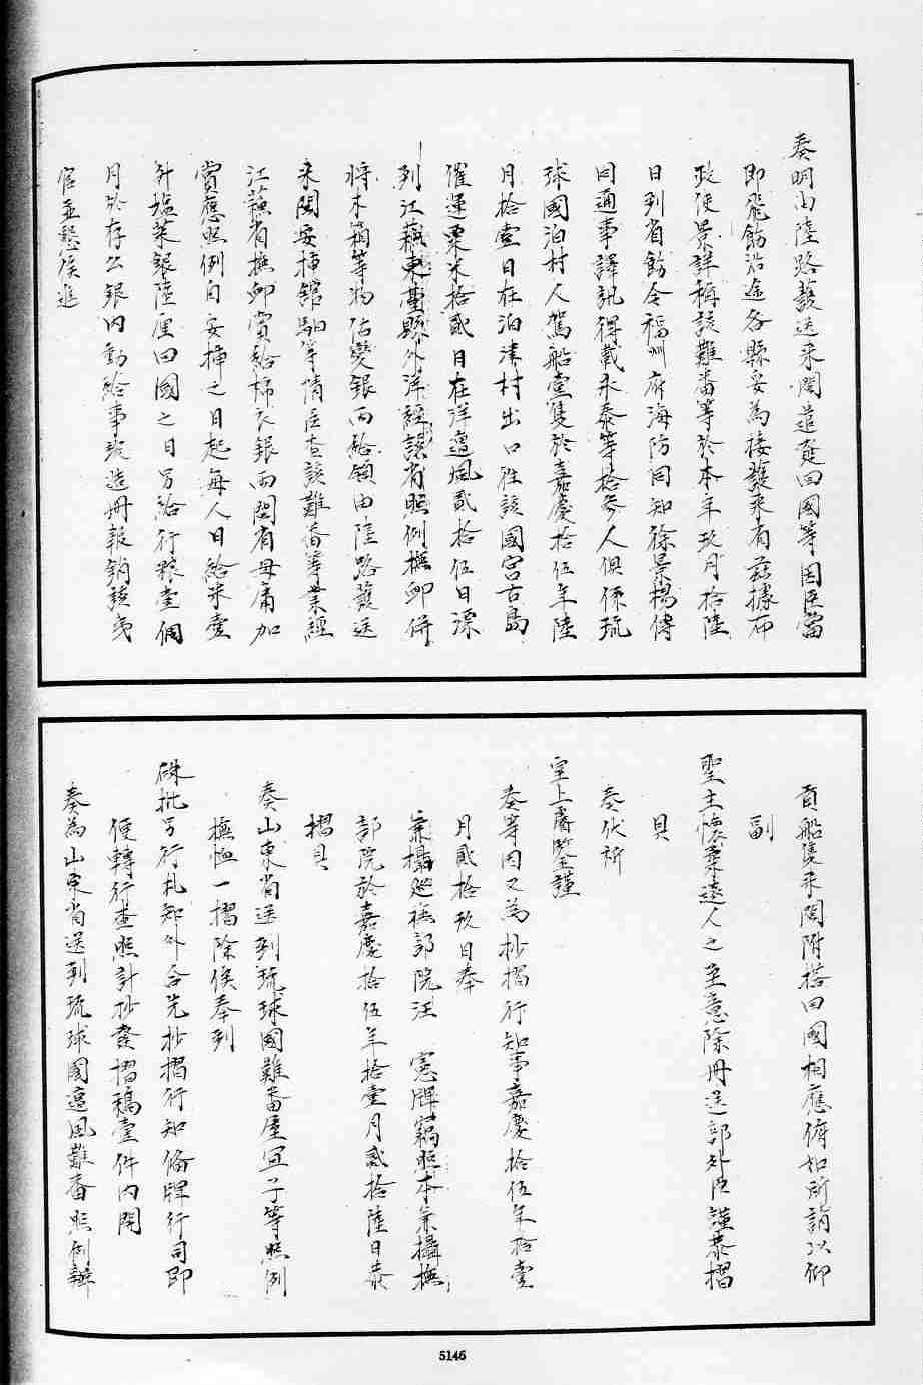 奏明由陸路護送来閩遣發回國等因臣當
即飛飭沿途各縣妥為接護来有茲據布
政使景詳稱該難番等於本年玖月拾陸
日到省飭令福州府海防同知徐景揚傳
同通事譯訊得戴永泰等拾參人俱係琉
球國泊村人駕船壹隻於嘉慶拾伍年陸
月拾壹日在泊津村出口往該國宮古島
催運粟米拾貳日在洋遭風貳拾伍日漂
到江蘇東臺縣外洋經該省照例撫卹併
將木箱等物估變銀両給領由陸路護送
来閩安揷館驛等情臣查該難番等業經
江蘇省撫卹賞給棉衣銀両閩省毋庸加
賞應照例自安揷之日起每人日給米壹
升塩菜銀陸厘回國之日另給行粮壹個
月於存公銀内動給事竣造册報銷該夷
官並懇俟進
貢船隻来閩附搭回國相應俯如所請以仰
副
聖主懷柔遠人之至意除册送部外臣謹恭摺
具
奏伏祈
皇上睿鑒謹
奏等因又為抄摺行知事嘉慶拾伍年拾壹
月貳拾玖日奉
兼攝巡撫部院汪 憲牌竊照本兼攝撫
部院於嘉慶拾伍年拾壹月貳拾陸日恭
摺具
奏山東省送到琉球國難番屋宜子等照例
撫恤一摺除俟奉到
硃批另行札知外合先抄摺行知俻牌行司即
便轉行查照計抄發摺稿壹件内開
奏為山東省送到琉球國遭風難番照例辦
5146